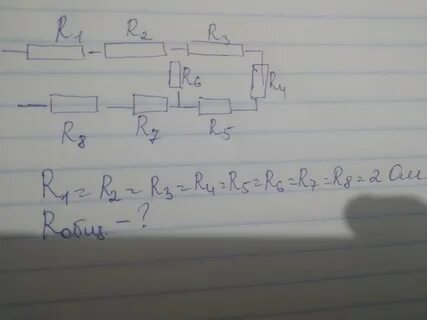 R1 R2 R3
R6 R4
R8 R7 R5
R1 = R2 = R3 = R4 = R5 = R6 = R7 = R8 = 2 Ом
Rобщ - ?